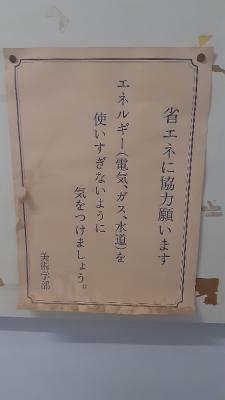 省エネに協力願います
エネルギー(電気、ガス、水道)を
使いすぎないように
気をつけましょう。
美術学部